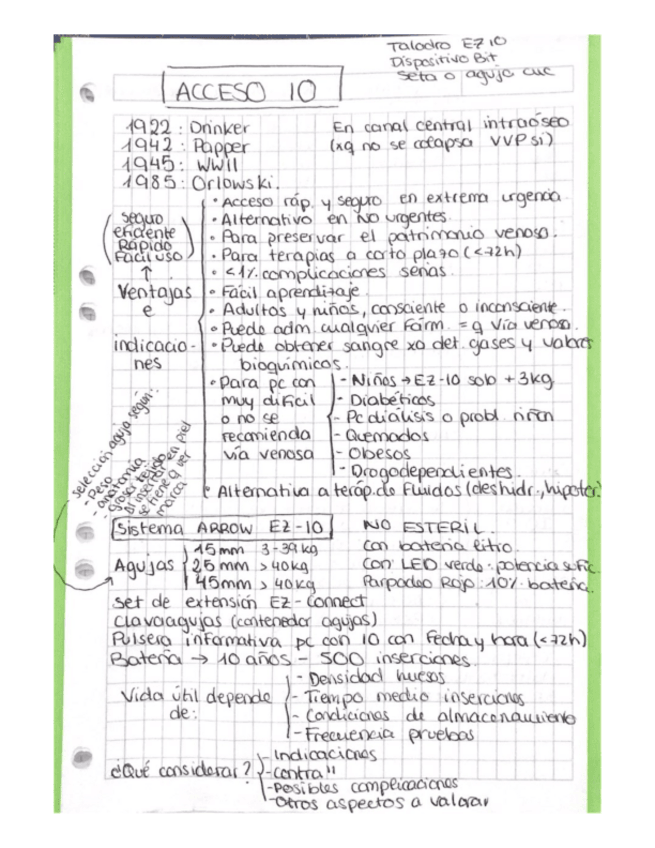 Taladro EZ IO
Dispositivo Bit
Seta o aguja cuc
ACCESO IO
1922: Drinker
1942: Papper
1945: WWII
1985: Orlowski.
En canal central intraóseo
(xq no se colapsa VVP si)
seguro
eficiente
Rápido
Fácil uso
↑
Ventajas
e
indicacio-
nes
• Acceso ráp. y seguro en extrema urgencia
• Alternativo en NO urgentes.
• Para preservar el patrimonio venoso.
• Para terapias a corto plazo (<72h)
• <1% complicaciones serias.
• Fácil aprendizaje.
• Adultos y niños, consciente o inconsciente.
• Puede adm cualquier Farm. = q vía venosa.
• Puede obtener sangre xa det. gases y valores
bioquímicos.
• Para pc con
muy difícil
o no se
recomienda
vía venosa
- Niños → EZ-IO solo +3kg
- Diabéticos
- Pc diálisis o probl. riñón
- Quemados
- Obesos
- Drogodependientes.
• Alternativa a teráp. de Fluidos (deshidr., hipoter.)
Selección aguja según:
- Peso
- anatomía
- grosor tejido
Al insertar en piel
se tiene q ver
marca
Sistema ARROW EZ-IO
Agujas
15mm 3-39kg
25mm >40kg
45mm >40kg
NO ESTERIL.
Con batería litio.
Con LED verde: potencia sufic.
Parpadeo Rojo: 10% batería.
Set de extensión EZ-Connect
Clavaagujas (contenedor agujas)
Pulsera informativa pc con IO con Fecha y hora (<72h)
Batería → 10 años - 500 inserciones.
Vida útil depende
de:
- Densidad huesos
- Tiempo medio inserciones
- Condiciones de almacenamiento
- Frecuencia pruebas
¿Qué considerar?
- Indicaciones
- Contra "
- Posibles complicaciones
- Otros aspectos a valorar